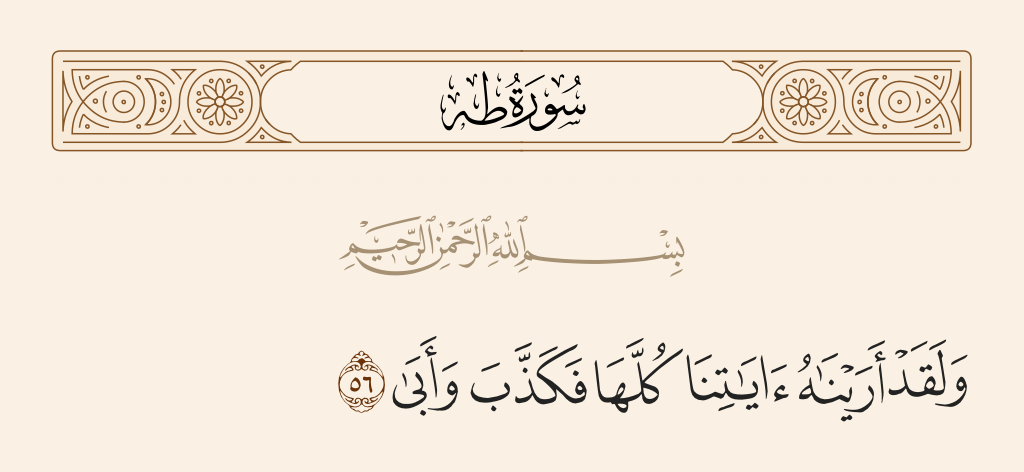 سُورَةُ طه
بِسْمِ ٱللَّهِ ٱلرَّحْمَٰنِ ٱلرَّحِيمِ
وَلَقَدْ أَرَيْنَٰهُ ءَايَٰتِنَا كُلَّهَا فَكَذَّبَ وَأَبَىٰ ٥٦